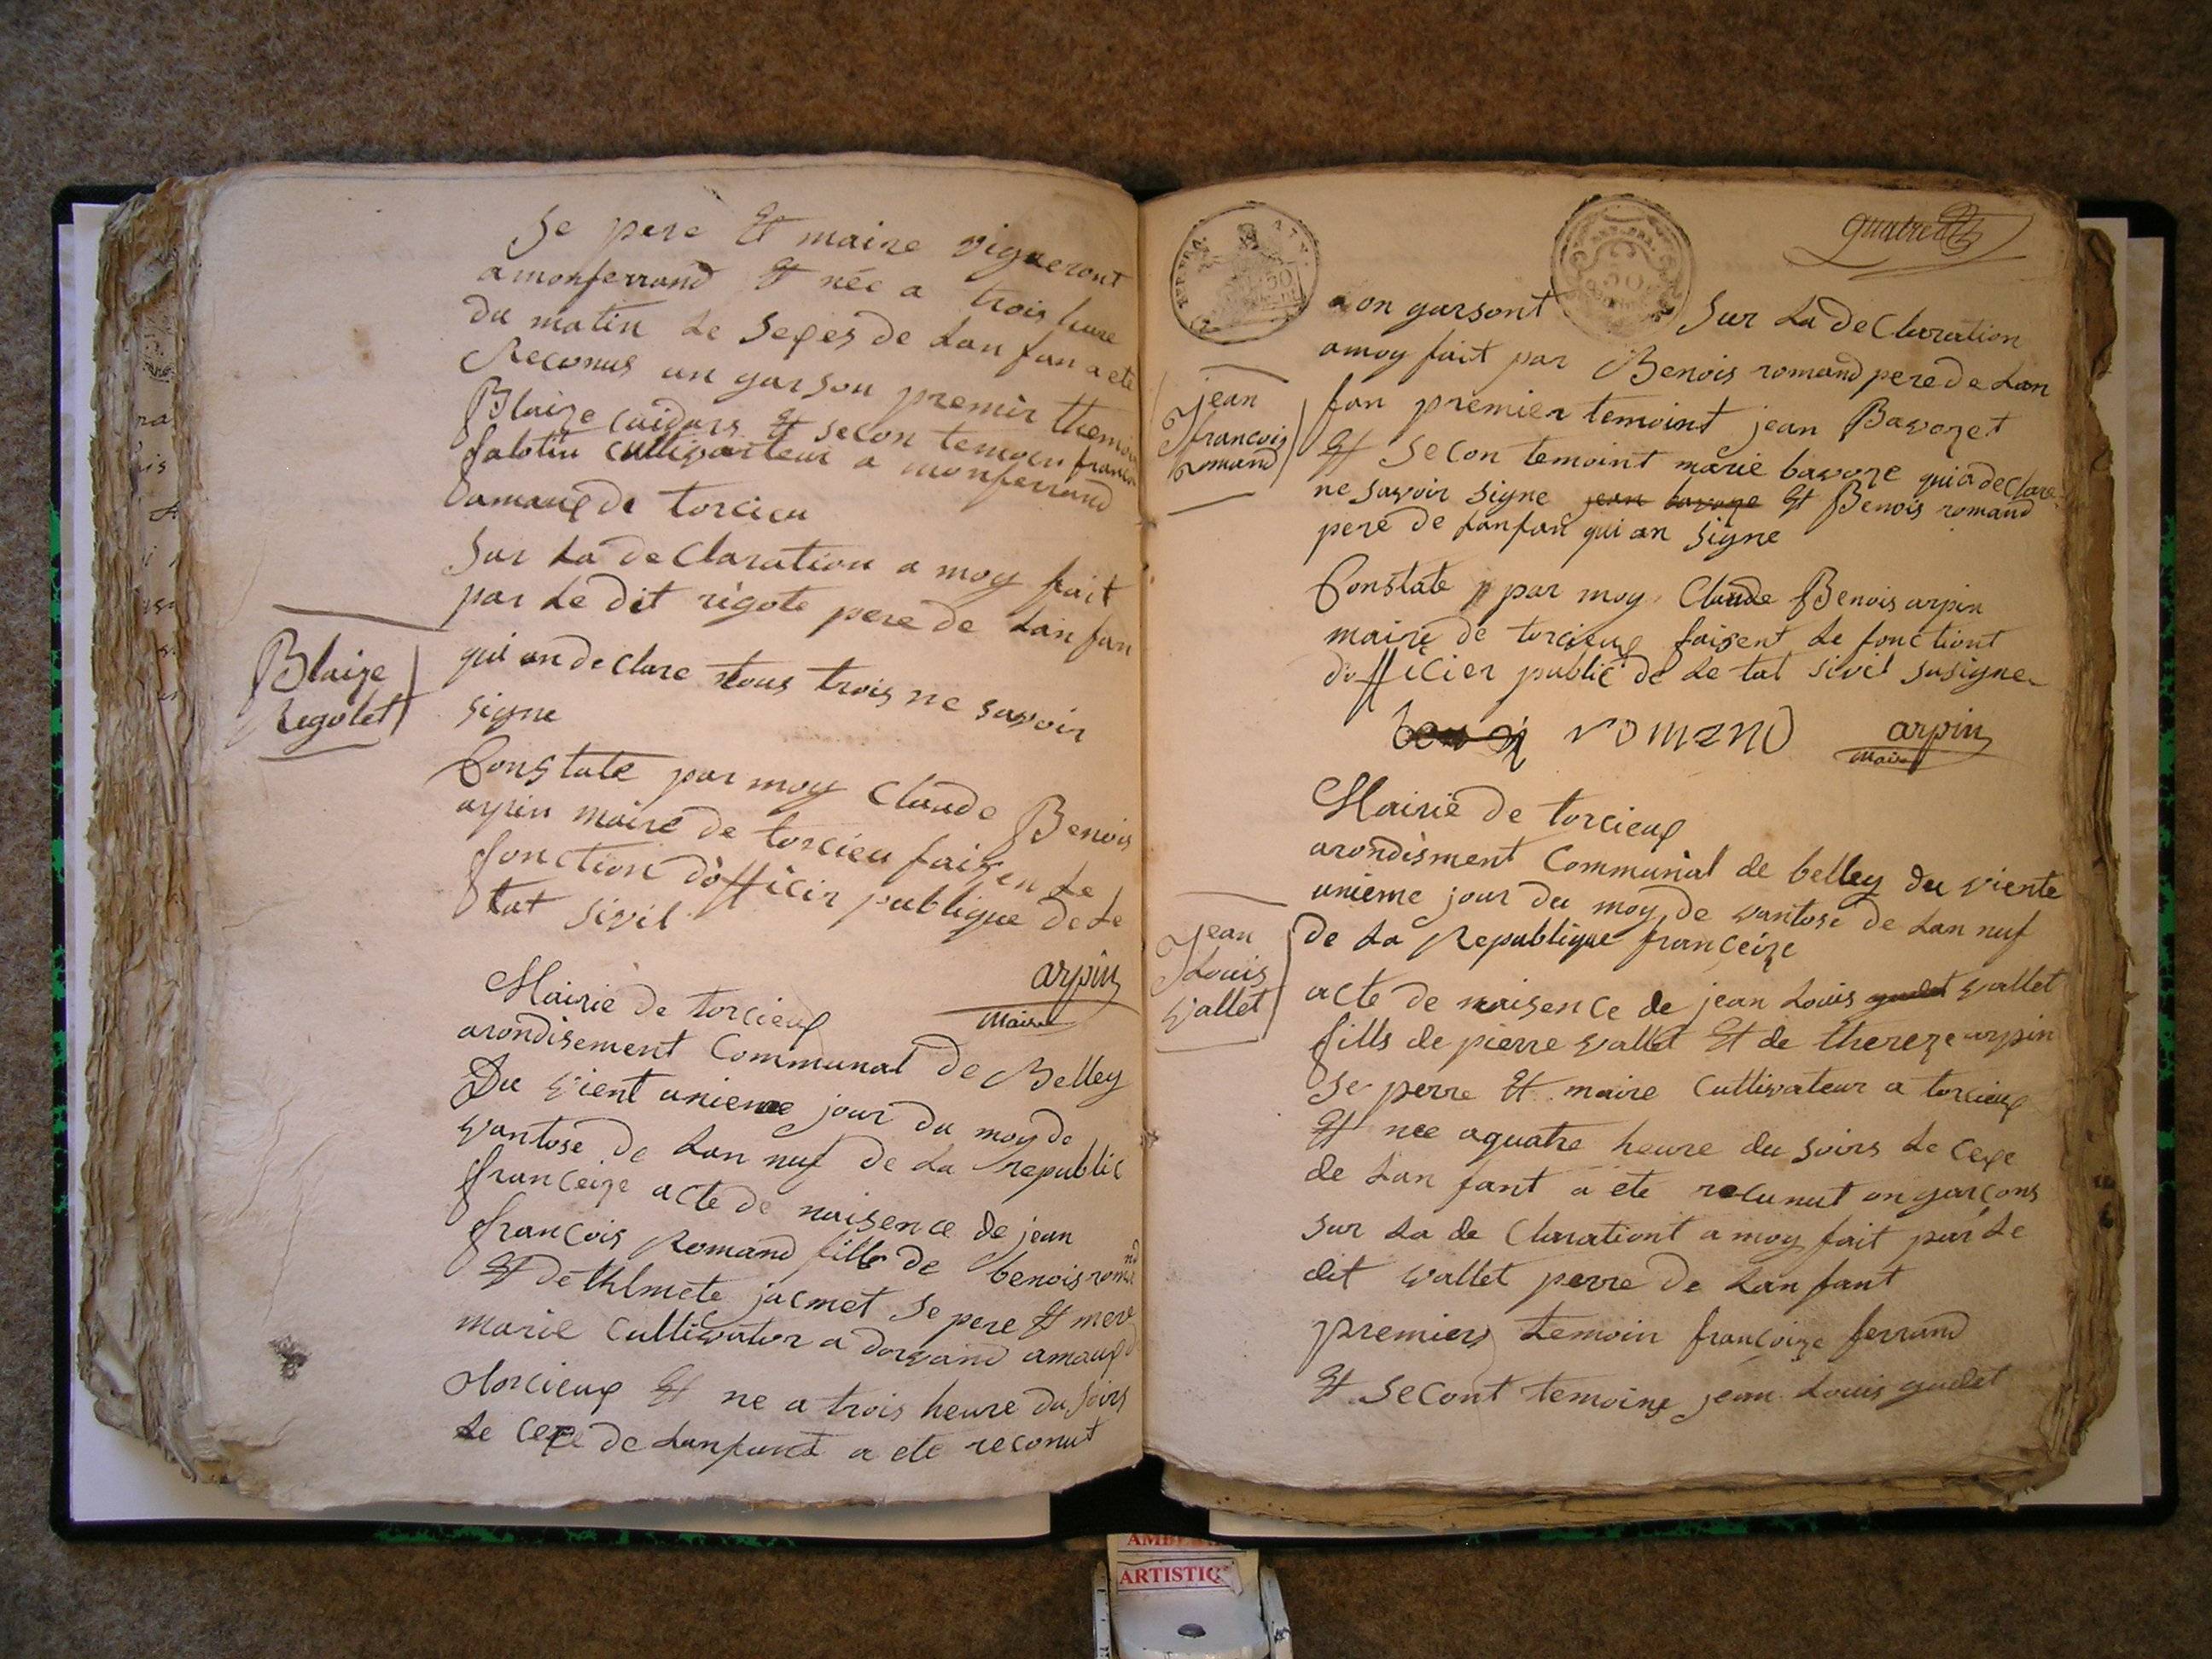 Se pere Et maire vigneront
a monferrand Et née a trois heure
du matin Le Sexes de Lan fan a ete
Reconus un garson premir themoin
Blaize Et Secon temoen francoi
falotin a monferrand
amaux de torcieu
Sur La declaration a moy fait
par Le dit rigote pere de Lan fan
qui an declare tous trois ne savoir
signe
Blaize
Regolet
Constate par moy Claude Benois
arpin maire de torcieu faizen Le
fonction dofficir publique de Le
tat sivil
arpin
maire
Mairie de torcieux
arondisement Communal de Belley
Du vient unieme jour du moy de
vantose de Lan nuf de La republic
franceize acte de naisence de jean
francois Romand fills de benois romand
Et de jacmet Se pere Et mere
marie Cultivator a dorvand amaux d
torcieux Et ne a trois heure du Soirs
Le cexe de Lanfant a ete reconut
quatre
a on garsont Sur La declaration
a moy fait par Benois romand pere de Lan
fan premier temoint jean Bavozet
Et Secon temoint marie bavoze qui a declare
ne savoir signe jean bavoze Et Benois romand
pere de Lanfan qui an signe
jean
francois
Romand
Constate par moy Claude Benois arpin
maire de torcieux faisent Le fonctiont
dofficier public de Le tat sivil susigne
romand arpin
maire
Mairie de torcieux
arondisment Communal de belley du viente
unieme jour du moy de vantose de Lan nuf
de La Republique franceize
jean
Louis
vallet
acte de naisence de jean Louis gudet vallet
fills de pierre vallet Et de thereze arpin
Se perre Et maire Cultivateur a torcieux
Et nee a quatre heure du soirs Le cexe
de Lan fant a ete recunut on garçons
sur La de Clarationt a moy fait par Le
dit vallet perre de Lan fant
premiers temoin françoize ferrand
Et Secont temoins jean Louis gudet
AMBE
ARTISTIQ